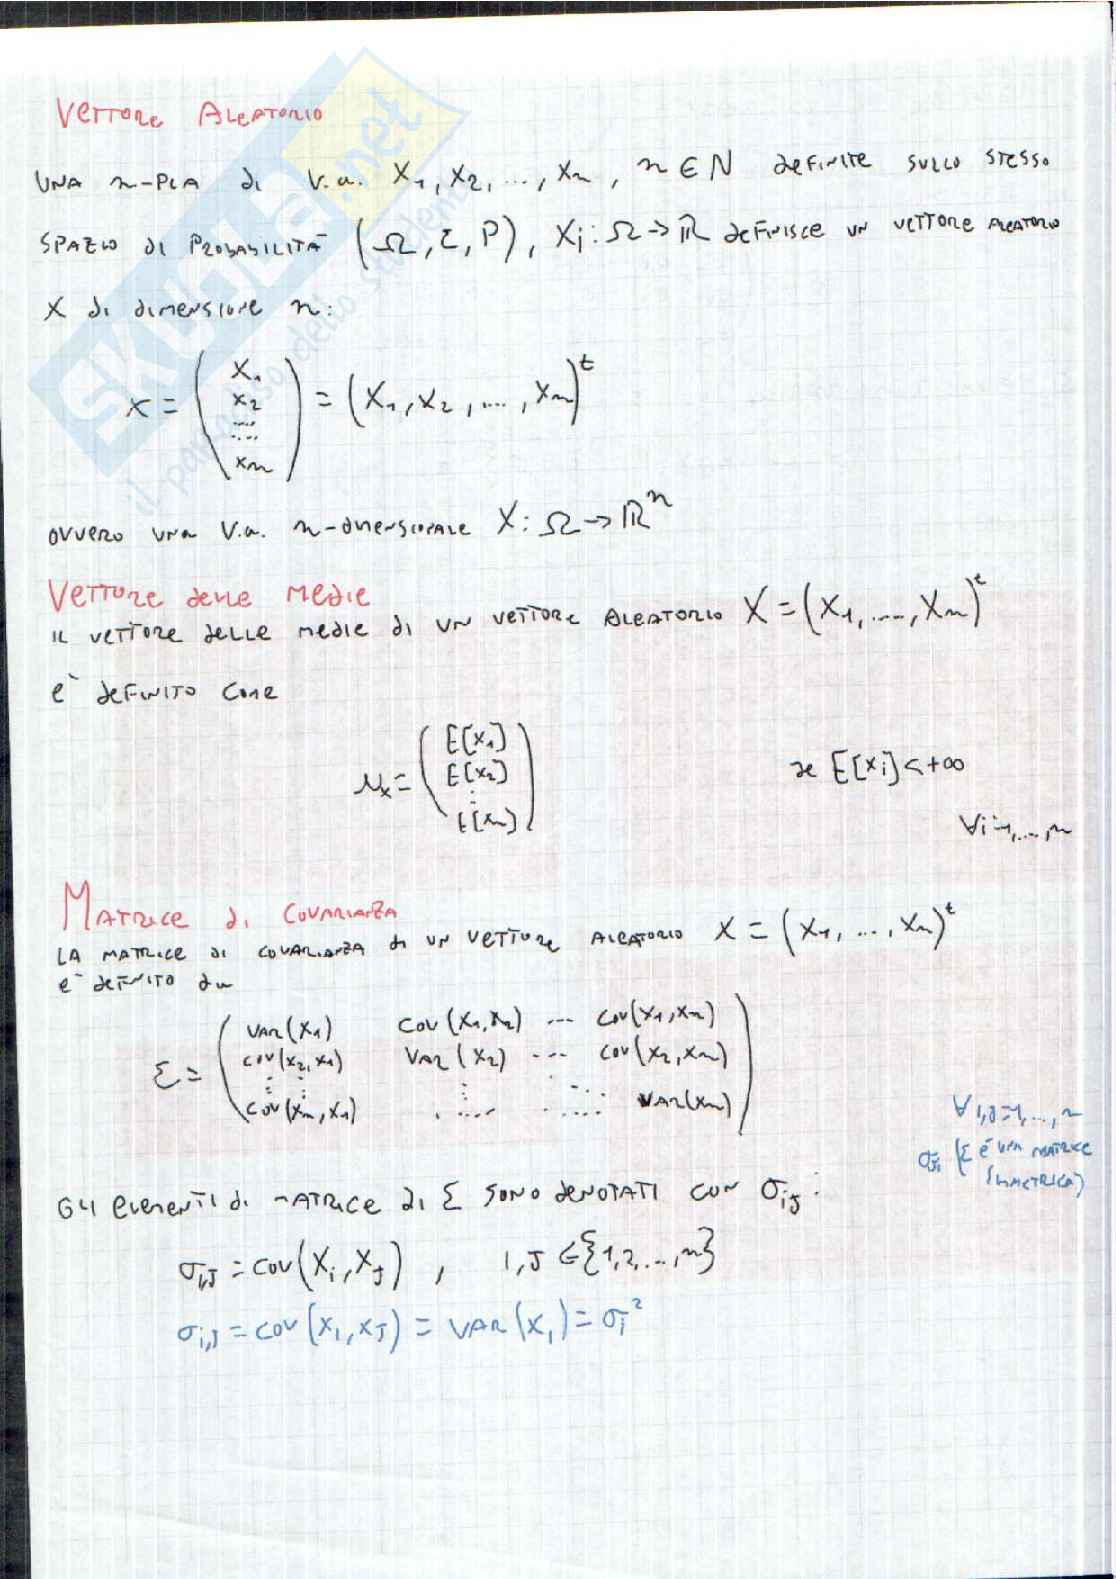 VETTORE ALEATORIO
UNA n-PLA di V.a. X₁, X₂, ..., Xn, n ∈ N deFINITE SULLO STESSO
SPAZIO di PROBABILITÀ (Ω, Σ, P), Xi : Ω → ℝ deFINISCE UN VETTORE ALEATORIO
X di dimensione n:
X = (X₁ X₂ .... .... Xn) = (X₁, X₂, ...., Xn)^t
OVVERO UNA V.a. n-dimensionale X : Ω → ℝ^n
VETTORE delle medie
IL VETTORE delle medie di UN VETTORE ALEATORIO X = (X₁, ...., Xn)^t
e' deFINITO COME
μx = (E[X₁] E[X₂] ⋮ E[Xn])
se E[Xi] < +∞
∀i=1,...,n
MATRICE di COVARIANZA
LA MATRICE di COVARIANZA di UN VETTORE ALEATORIO X = (X₁, ..., Xn)^t
e' deFINITO da
VAR(X₁) COV(X₁,X₂) ... COV(X₁,Xn)
Σ = COV(X₂,X₁) VAR(X₂) ... COV(X₂,Xn)
COV(Xn,X₁) ..... ..... VAR(Xn)
∀ i,J=1,...,n
σji (Σ é UNA MATRICE
SIMMETRICA)
GLI elementi di MATRICE di Σ SONO deNOTATI CON σij :
σi,J = COV(Xi, XJ) , i,J ∈ {1,2,...,n}
σi,J = COV(Xi, XJ) = VAR(Xi) = σi²
SKUOLA.net
il paradiso dello studente